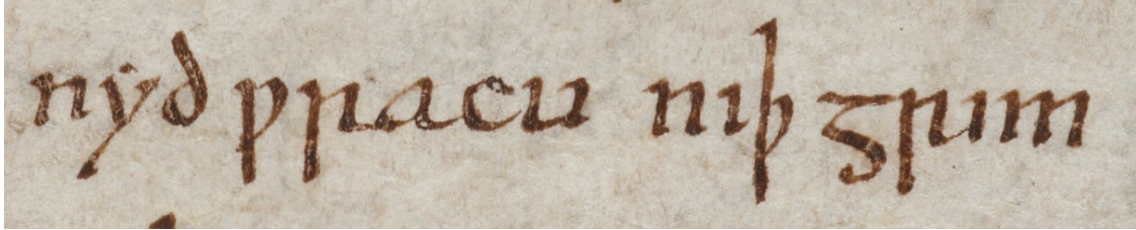 nyd ƿracu niþ grim